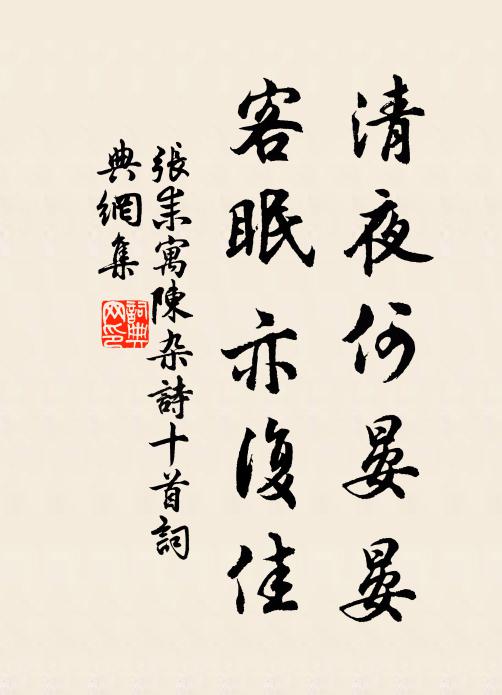 清夜何晏晏
客眠亦復佳
張耒寓陳杂詩十首詞
典網集
詞典
网印